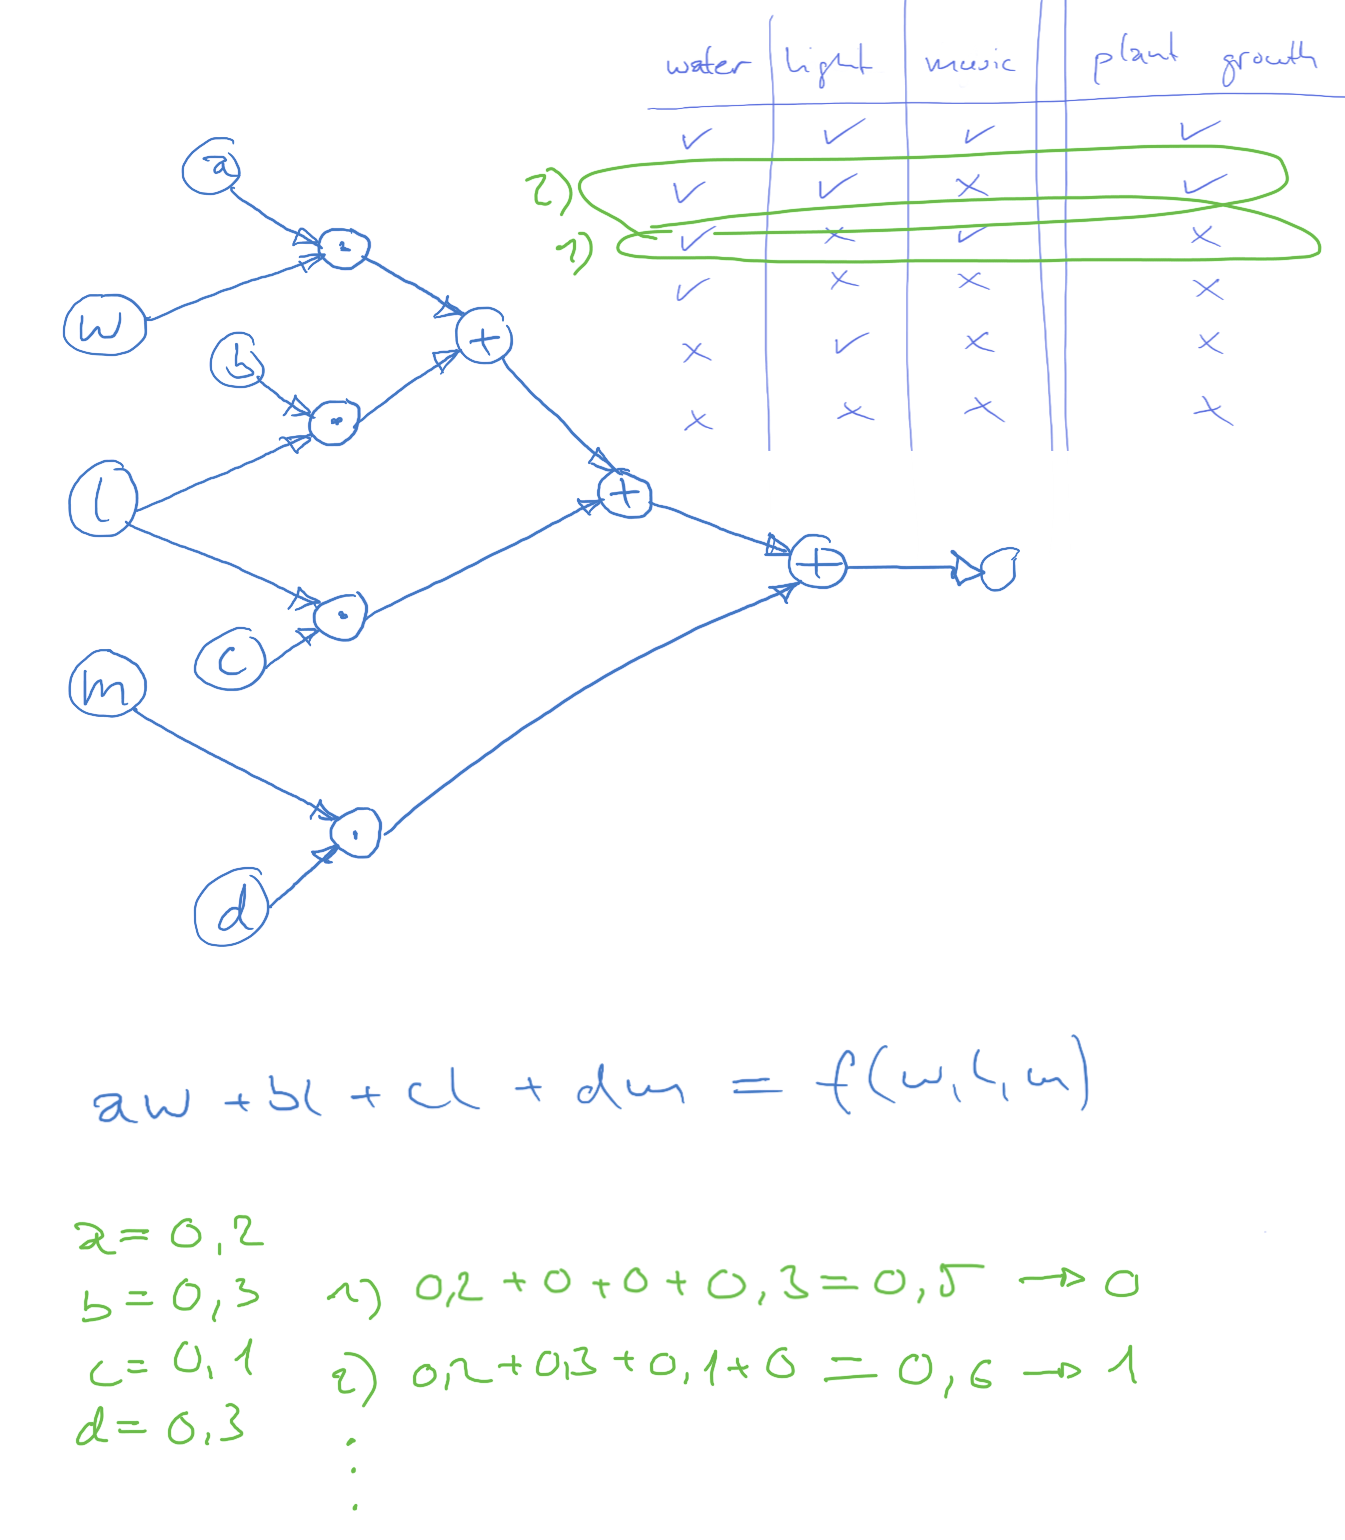 water light music plant growth
✓ ✓ ✓ ✓
2) ✓ ✓ × ✓
1) ✓ × ✓ ×
✓ × × ×
× ✓ × ×
× × × ×
a
·
w
+
b
·
l
+
+
·
c
m
·
d
aw + bl + cl + dm = f(w, l, m)
a = 0,2
b = 0,3 1) 0,2 + 0 + 0 + 0,3 = 0,5 → 0
c = 0,1 2) 0,2 + 0,3 + 0,1 + 0 = 0,6 → 1
d = 0,3
⋮